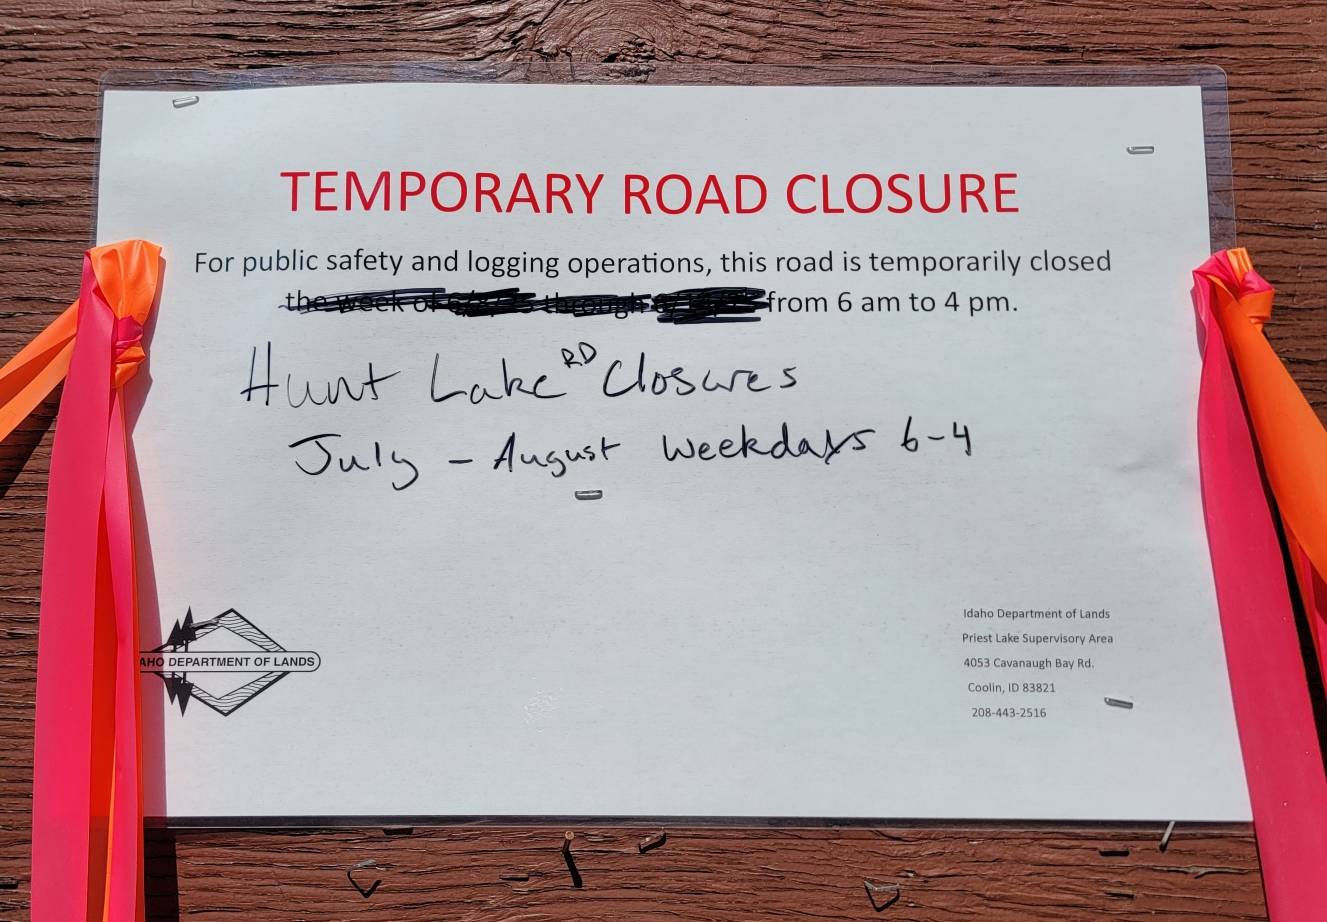 TEMPORARY ROAD CLOSURE
For public safety and logging operations, this road is temporarily closed
the week of through from 6 am to 4 pm.
Hunt Lake RD Closures
July - August Weekdays 6-4
AHO DEPARTMENT OF LANDS
Idaho Department of Lands
Priest Lake Supervisory Area
4053 Cavanaugh Bay Rd.
Coolin, ID 83821
208-443-2516